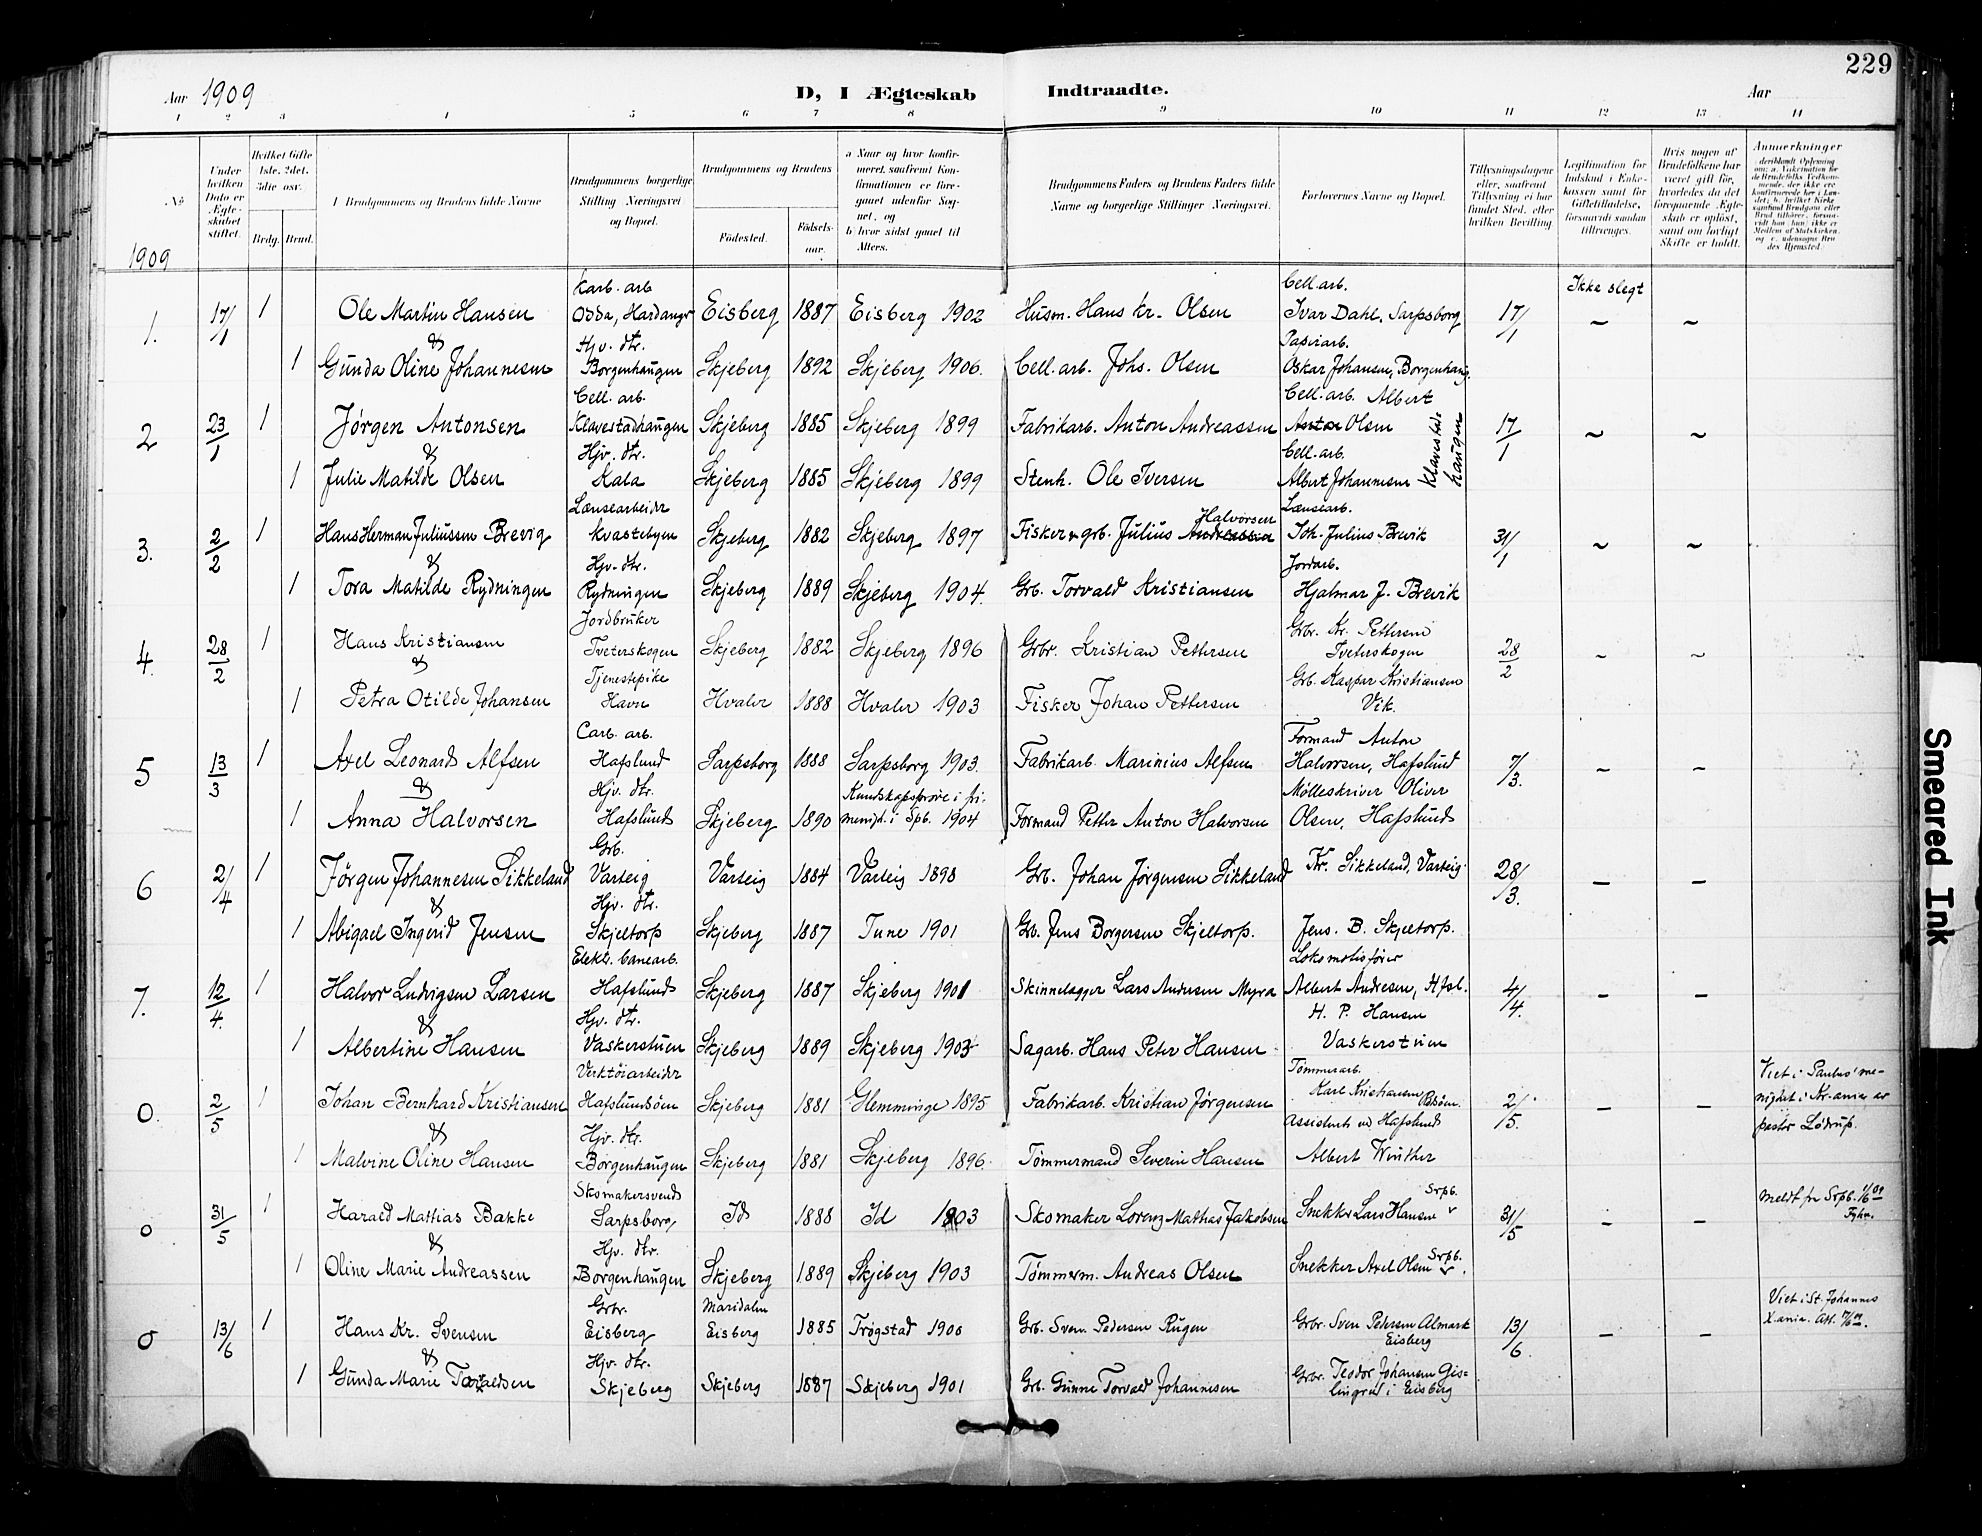 229
Aar 1909 D, I Ægteskab Indtraadte. Aar
1 2 3 4 5 6 7 8 9 10 11 12 13 14
No
Under hvilken Dato er Ægteskabet stiftet.
Hvilket Gifte 1ste, 2det, 3die osv.
Brdg. Brud.
Brudgommens og Brudens fulde Navne
Brudgommens borgerlige Stilling Næringsvei og Bopæl.
Brudgommens og Brudens
Födested. Födselsaar.
a Naar og hvor konfirmeret, saafremt Konfirmationen er foregaaet udenfor Sognet, og
b hvor sidst gaaet til Alters.
Brudgommens Faders og Brudens Faders fulde Navne og borgerlige Stillinger Næringsvei.
Forlovernes Navne og Bopæl.
Tillysningsdagene eller, saafremt Tillysning ei har fundet Sted, efter hvilken Bevilling
Legitimation for Indskud i Enkekassen samt for Giftetilladelse, forsaavidt saadan tiltrænges.
Hvis nogen af Brudefolkene har været gift før, hvorledes da det foregaaende Ægteskab er opløst, samt om lovligt Skifte er holdt.
Anmerkninger
1909
Karb. arb. Cell. arb. Ikke slegt
1. 17/1 1 Ole Martin Hansen Odda, Hardanger Eisberg 1887 Eisberg 1902 Husm. Hans Kr. Olsen Ivar Dahl, Sarpsborg 17/1 ~ ~
& Hjv. dtr. Papirarb.
1 Gunda Oline Johannesen Borgenhaugen Skjeberg 1892 Skjeberg 1906. Cell. arb. Johs. Olsen Oskar Johansen, Borgenhaug.
Cell. arb. Cell. arb. Albert
2 23/1 1 Jørgen Antonsen Klavestadhaugen Skjeberg 1885 Skjeberg 1899 Fabrikarb. Anton Andreassen Anton Olsen 17/1 ~ ~
& Hjv. dtr. Cell. arb. Klavestadhaugen
1 Julie Matilde Olsen Kala Skjeberg 1885 Skjeberg 1899 Stenh. Ole Iversen Albert Johannesen
Lænsearbeider Halvorsen Lænsearb.
3. 2/2 1 Hans Herman Juliussen Brevig Kvastebyen Skjeberg 1882 Skjeberg 1897 Fisker & grb. Julius Andreassen Joh. Julius Brevik 31/1 ~ ~
& Hjv. dtr. Jordarb.
1 Tora Matilde Rydningen Rydningen Skjeberg 1889 Skjeberg 1904. Grb. Torvald Kristiansen Hjalmar J. Brevik
Jordbruker Grbr. Kr. Pettersen
4. 28/2 1 Hans Kristiansen Tveterskogen Skjeberg 1882 Skjeberg 1896 Grbr. Kristian Pettersen Tveterskogen 28/2 ~ ~
& Tjenestepike Grb. Kaspar Kristiansen
1 Petra Otilde Johansen Havn Hvaler 1888 Hvaler 1903 Fisker Johan Pettersen Vik.
Carb. arb. Formand Anton
5 13/3 1 Axel Leonard Alfsen Hafslund Sarpsborg 1888 Sarpsborg 1903. Fabrikarb. Marinius Alfsen Halvorsen, Hafslund 7/3. ~ ~
& Hjv. dtr. Kundskapsprøve i fri- Mölleskriver Oliver
1 Anna Halvorsen Hafslund Skjeberg 1890 menigh. i Spb. 1904 Formand Petter Anton Halvorsen Olsen, Hafslund
Grb.
6 2/4 1 Jørgen Johannesen Sikkeland Varteig Varteig 1884 Varteig 1898 Grb. Johan Jørgensen Sikkeland Kr. Sikkeland, Varteig. 28/3. — —
& Hjv. dtr.
1 Abigael Ingerid Jensen Skjeltorp Skjeberg 1887 Tune 1901 Grb. Jens Borgersen Skjeltorp. Jens. B. Skjeltorp.
Elektr. banearb. Lokomotivfører
7. 12/4. 1 Halvor Ludvigsen Larsen Hafslund Skjeberg 1887 Skjeberg 1901 Skinnelægger Lars Andersen Myra Albert Andresen, Hfsl. 4/4. — —
& Hjv. dtr. H. P. Hansen
1 Albertine Hansen Vaskerstuen Skjeberg 1889 Skjeberg 1903 Sagarb. Hans Peter Hansen Vaskerstuen
Verktöiarbeider Tömmerarb. Viet i Paulus' me-
0. 2/5 1 Johan Bernhard Kristiansen Hafslundsöen Skjeberg 1881 Glemminge 1895 Fabrikarb. Kristian Jørgensen Karl Kristiansen 2/5. — — nighet i Kr.ania av
& Hjv. dtr. Assistent ved Hafslund pastor Lödrup.
1 Malvine Oline Hansen Borgenhaugen Skjeberg 1881 Skjeberg 1896. Tömmermand Severin Hansen Albert Winther
Skomakersvend Srpb. Meldt fra Srpb.
0 31/5 1 Harald Mathias Bakke Sarpsborg Id 1888 Id 1903 Skomaker Lorenz Mathias Jakobsen Snekker Lars Hansen 31/5 — —
& Hjv. dtr. Srpb.
1 Oline Marie Andreassen Borgenhaugen Skjeberg 1889 Skjeberg 1903 Tömmerm. Andreas Olsen Snekker Axel Olsen
Grbr. Maridalen Viet i St. Johannes
0 13/6 1 Hans Kr. Svensen Eisberg Eisberg 1885 Trøgstad 1900 Grb. Sven Pedersen Rugen Grbr. Sven Pedersen Almark Eisberg 13/6 — — X.ania.
& Hjv. dtr.
1 Gunda Marie Torvaldsen Skjeberg Skjeberg 1887 Skjeberg 1901 Grb. Gunne Torvald Johannesen Grbr. Teodor Johansen Gis-
lingrud i Eisberg
Smeared Ink